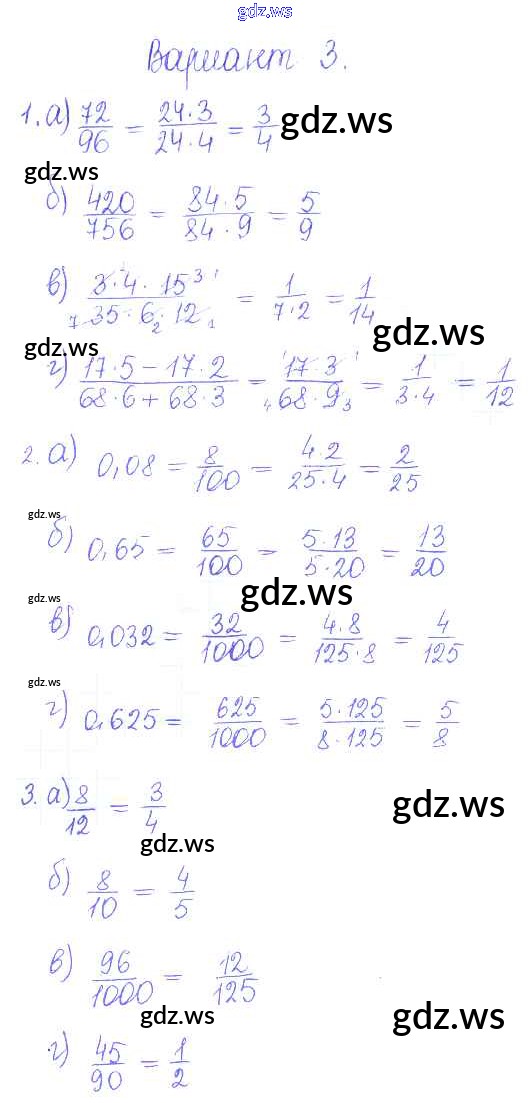 gdz.ws
Вариант 3.
1. а) 72/96 = 24·3/24·4 = 3/4 gdz.ws
gdz.ws
б) 420/756 = 84·5/84·9 = 5/9
в) 3·4·15 3 1/7 35·6 2·12 1 = 1/7·2 = 1/14
gdz.ws
gdz.ws
г) 17·5-17·2/68·6+68·3 = 1 17·3 1/4 68·9 3 = 1/3·4 = 1/12
2. а) 0,08 = 8/100 = 4·2/25·4 = 2/25
gdz.ws
б) 0,65 = 65/100 = 5·13/5·20 = 13/20
gdz.ws
gdz.ws
в) 0,032 = 32/1000 = 4·8/125·8 = 4/125
gdz.ws
г) 0,625 = 625/1000 = 5·125/8·125 = 5/8
3. а) 8/12 = 3/4
gdz.ws
gdz.ws
б) 8/10 = 4/5
в) 96/1000 = 12/125
gdz.ws
gdz.ws
г) 45/90 = 1/2